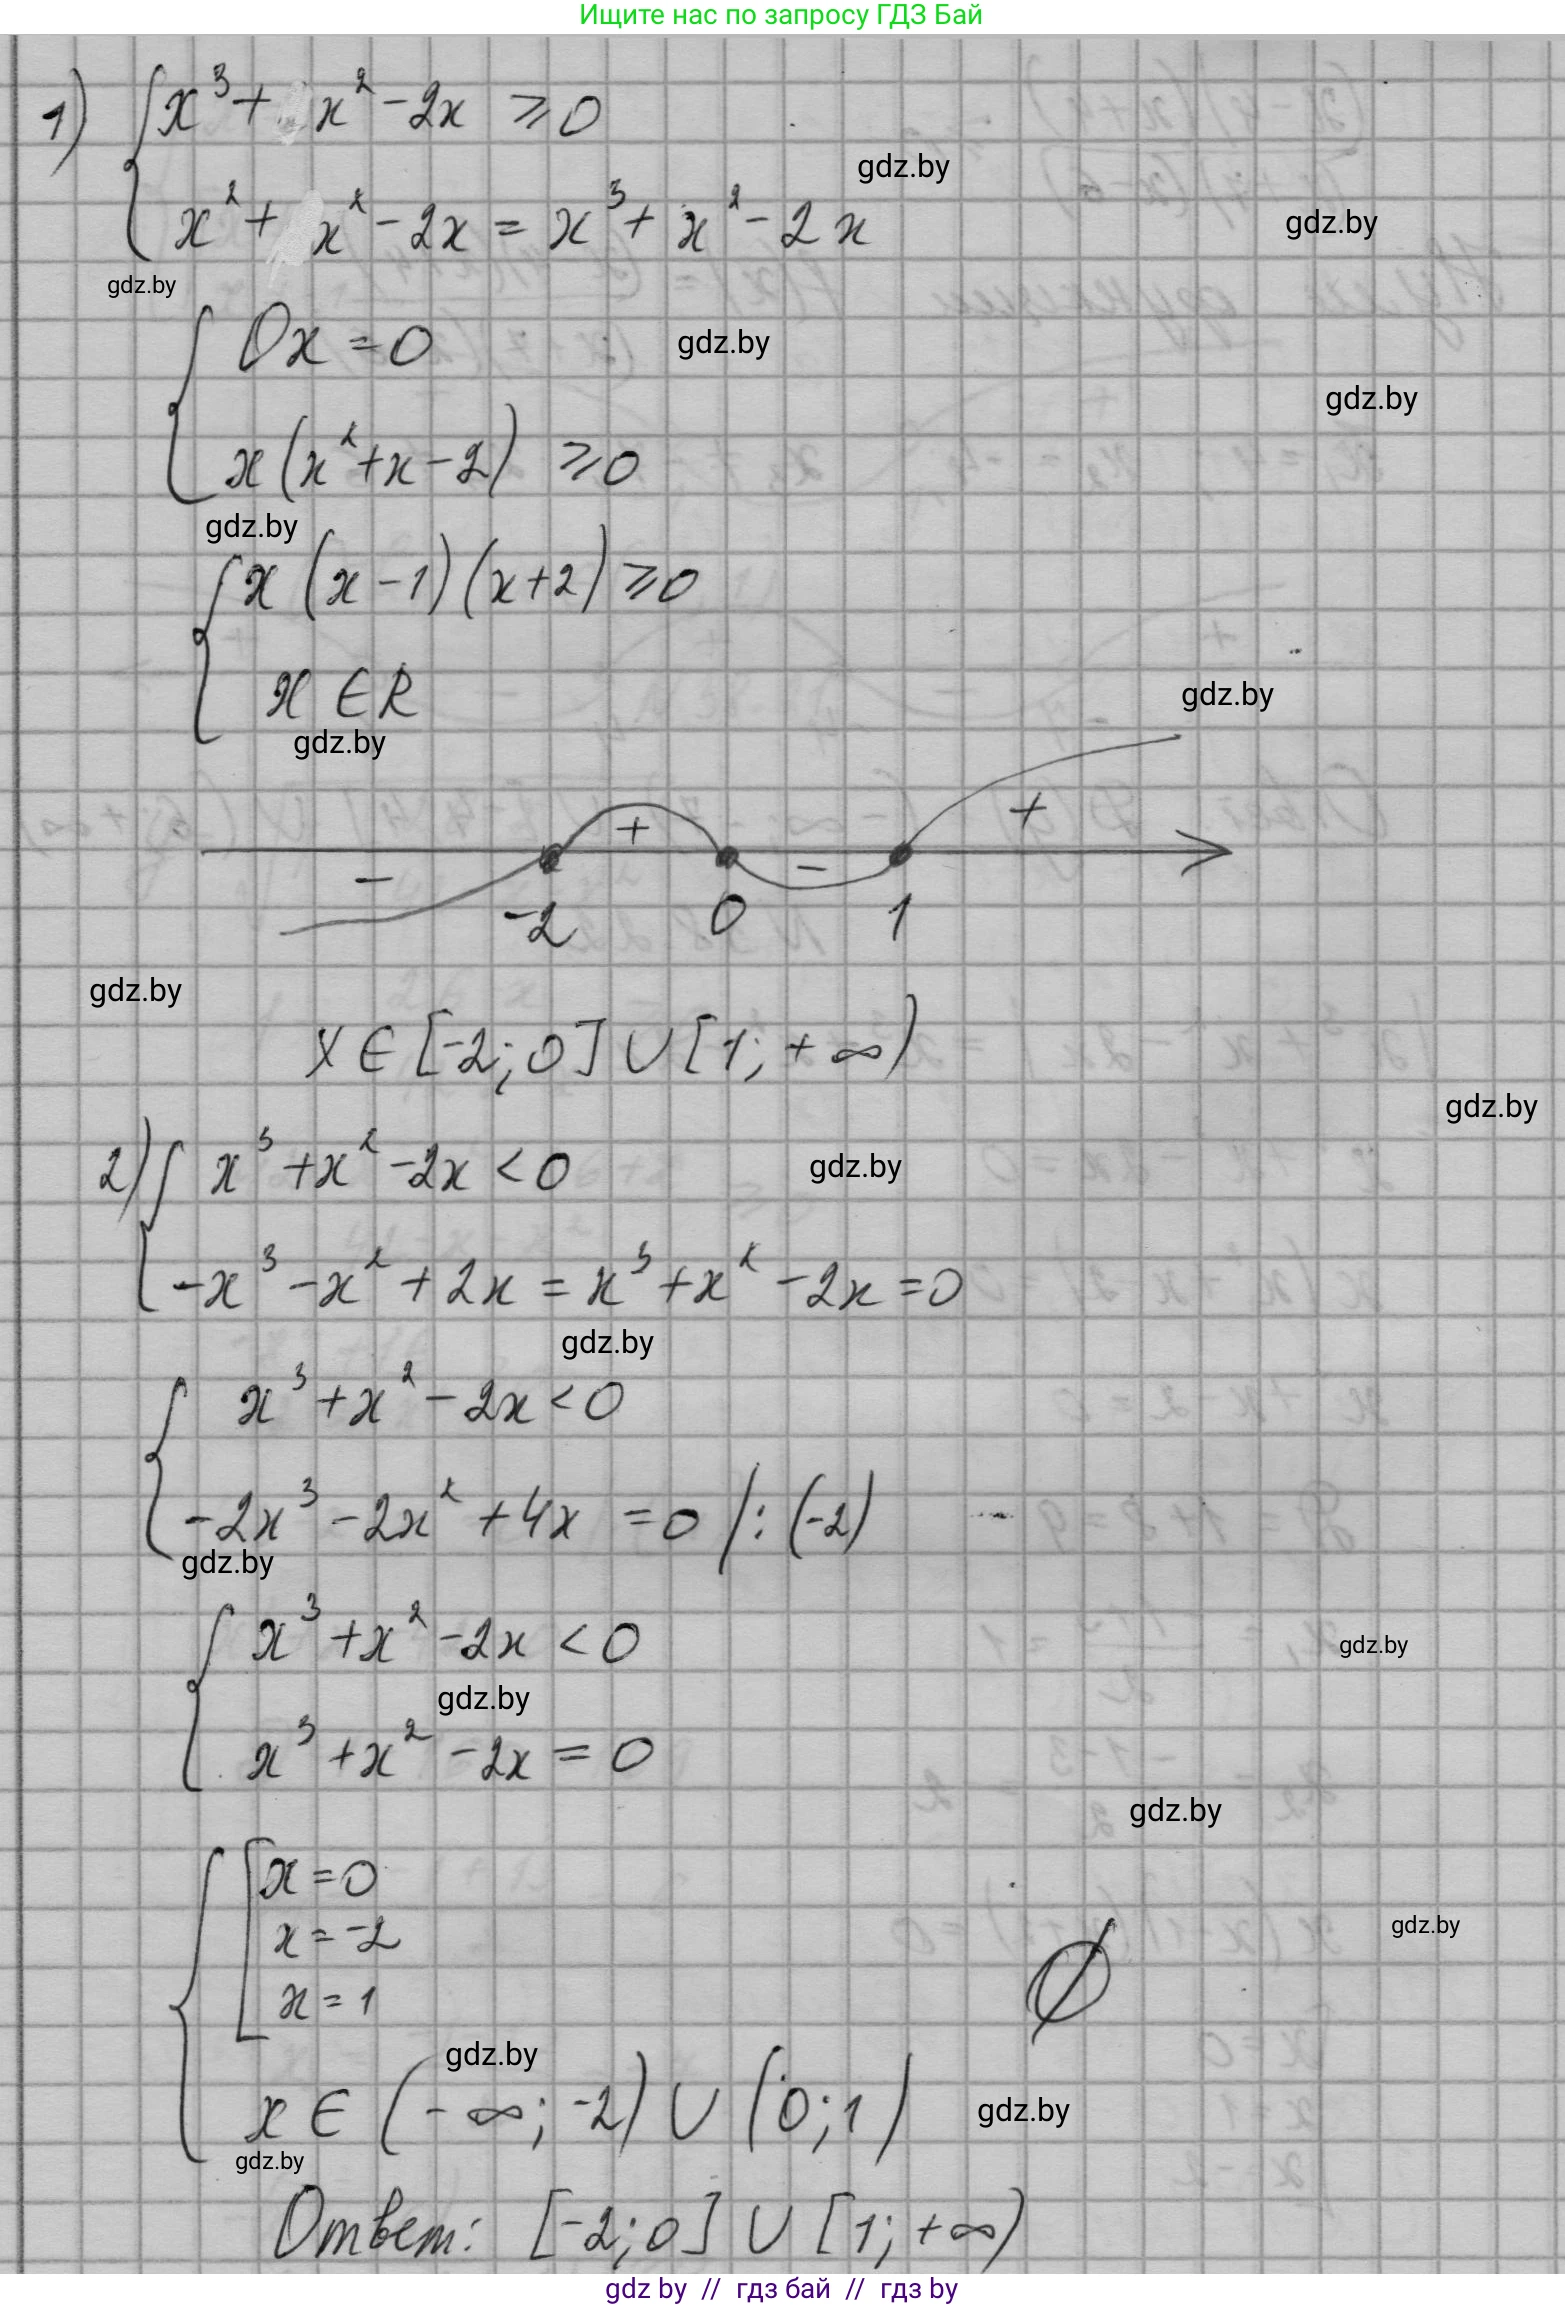 Ищите нас по запросу ГДЗ Бай
1) { x³ + x² - 2x ≥ 0
x² + x² - 2x = x³ + x² - 2x
gdz.by
gdz.by
gdz.by
{ 0x = 0
gdz.by
gdz.by
x (x² + x - 2) ≥ 0
gdz.by
{ x (x - 1) (x + 2) ≥ 0
x ∈ R
gdz.by
gdz.by
- + - +
-2 0 1
gdz.by
x ∈ [-2; 0] ∪ [1; + ∞)
gdz.by
2) { x³ + x² - 2x < 0
gdz.by
-x³ - x² + 2x = x³ + x² - 2x = 0
gdz.by
{ x³ + x² - 2x < 0
-2x³ - 2x² + 4x = 0 / : (-2)
gdz.by
{ x³ + x² - 2x < 0
gdz.by
gdz.by
x³ + x² - 2x = 0
gdz.by
{ [ x = 0
x = -2
x = 1
∅
gdz.by
gdz.by
x ∈ (- ∞; -2) ∪ (0; 1)
gdz.by
gdz.by
Ответ: [-2; 0] ∪ [1; +∞)
gdz by // гдз бай // гдз by